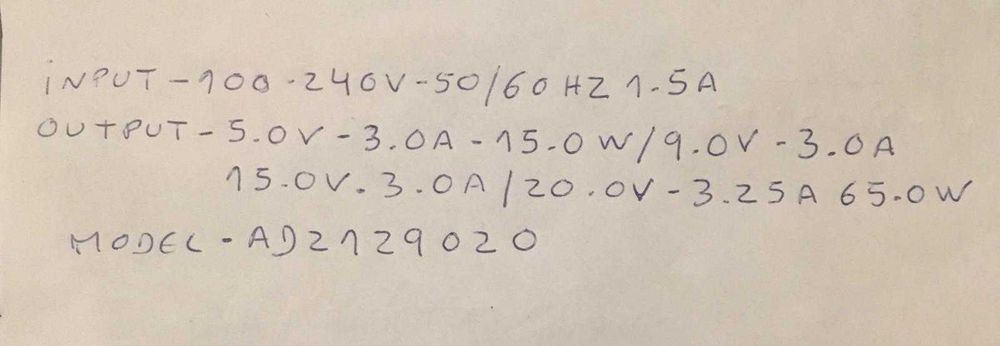 iNPUT-100-240V-50/60HZ 1.5A
OUTPUT-5.0V-3.0A-15.0W/9.0V-3.0A
15.0V.3.0A/20.0V-3.25A 65.0W
MODEL-AD2129020